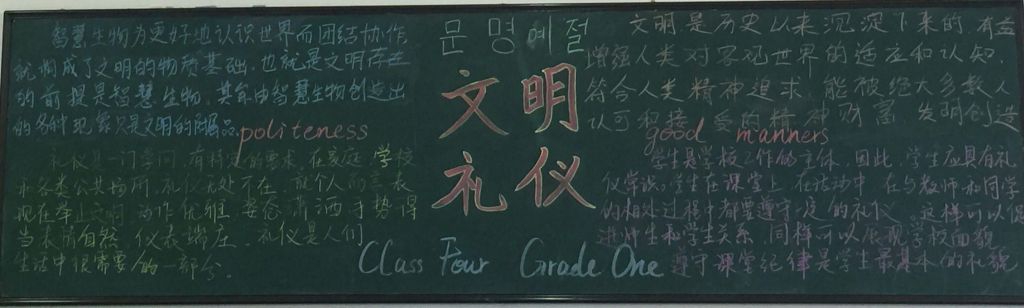 智慧生物为更好地认识世界而团结协作
就构成了文明的物质基础,也就是文明存在
的前提是智慧生物,其余由智慧生物创造出
的各种现象只是文明的附属品。
politeness
礼仪是一门学问,有特定的要求,在家庭 学校
和各类公共场所,礼仪无处不在,就个人而言表
现在举止文明 动作优雅 姿态潇洒 手势得
当 表情自然 仪表端庄. 礼仪是人们
生活中很需要的一部分。
문명예절
文明
礼仪
Class Four Grade One
文明是历史以来沉淀下来的,有益
增强人类对客观世界的适应和认知,
符合人类精神追求,能被绝大多数人
认可和接受的精神财富,发明创造
good manners
学生是学校工作的主体,因此,学生应具有礼
仪常识。学生在课堂上,在活动中,在与教师和同学
的相处过程中都要遵守一定的礼仪。这样可以促
进师生和学生关系,同样可以展现学校面貌
遵守课堂纪律是学生最基本的礼貌